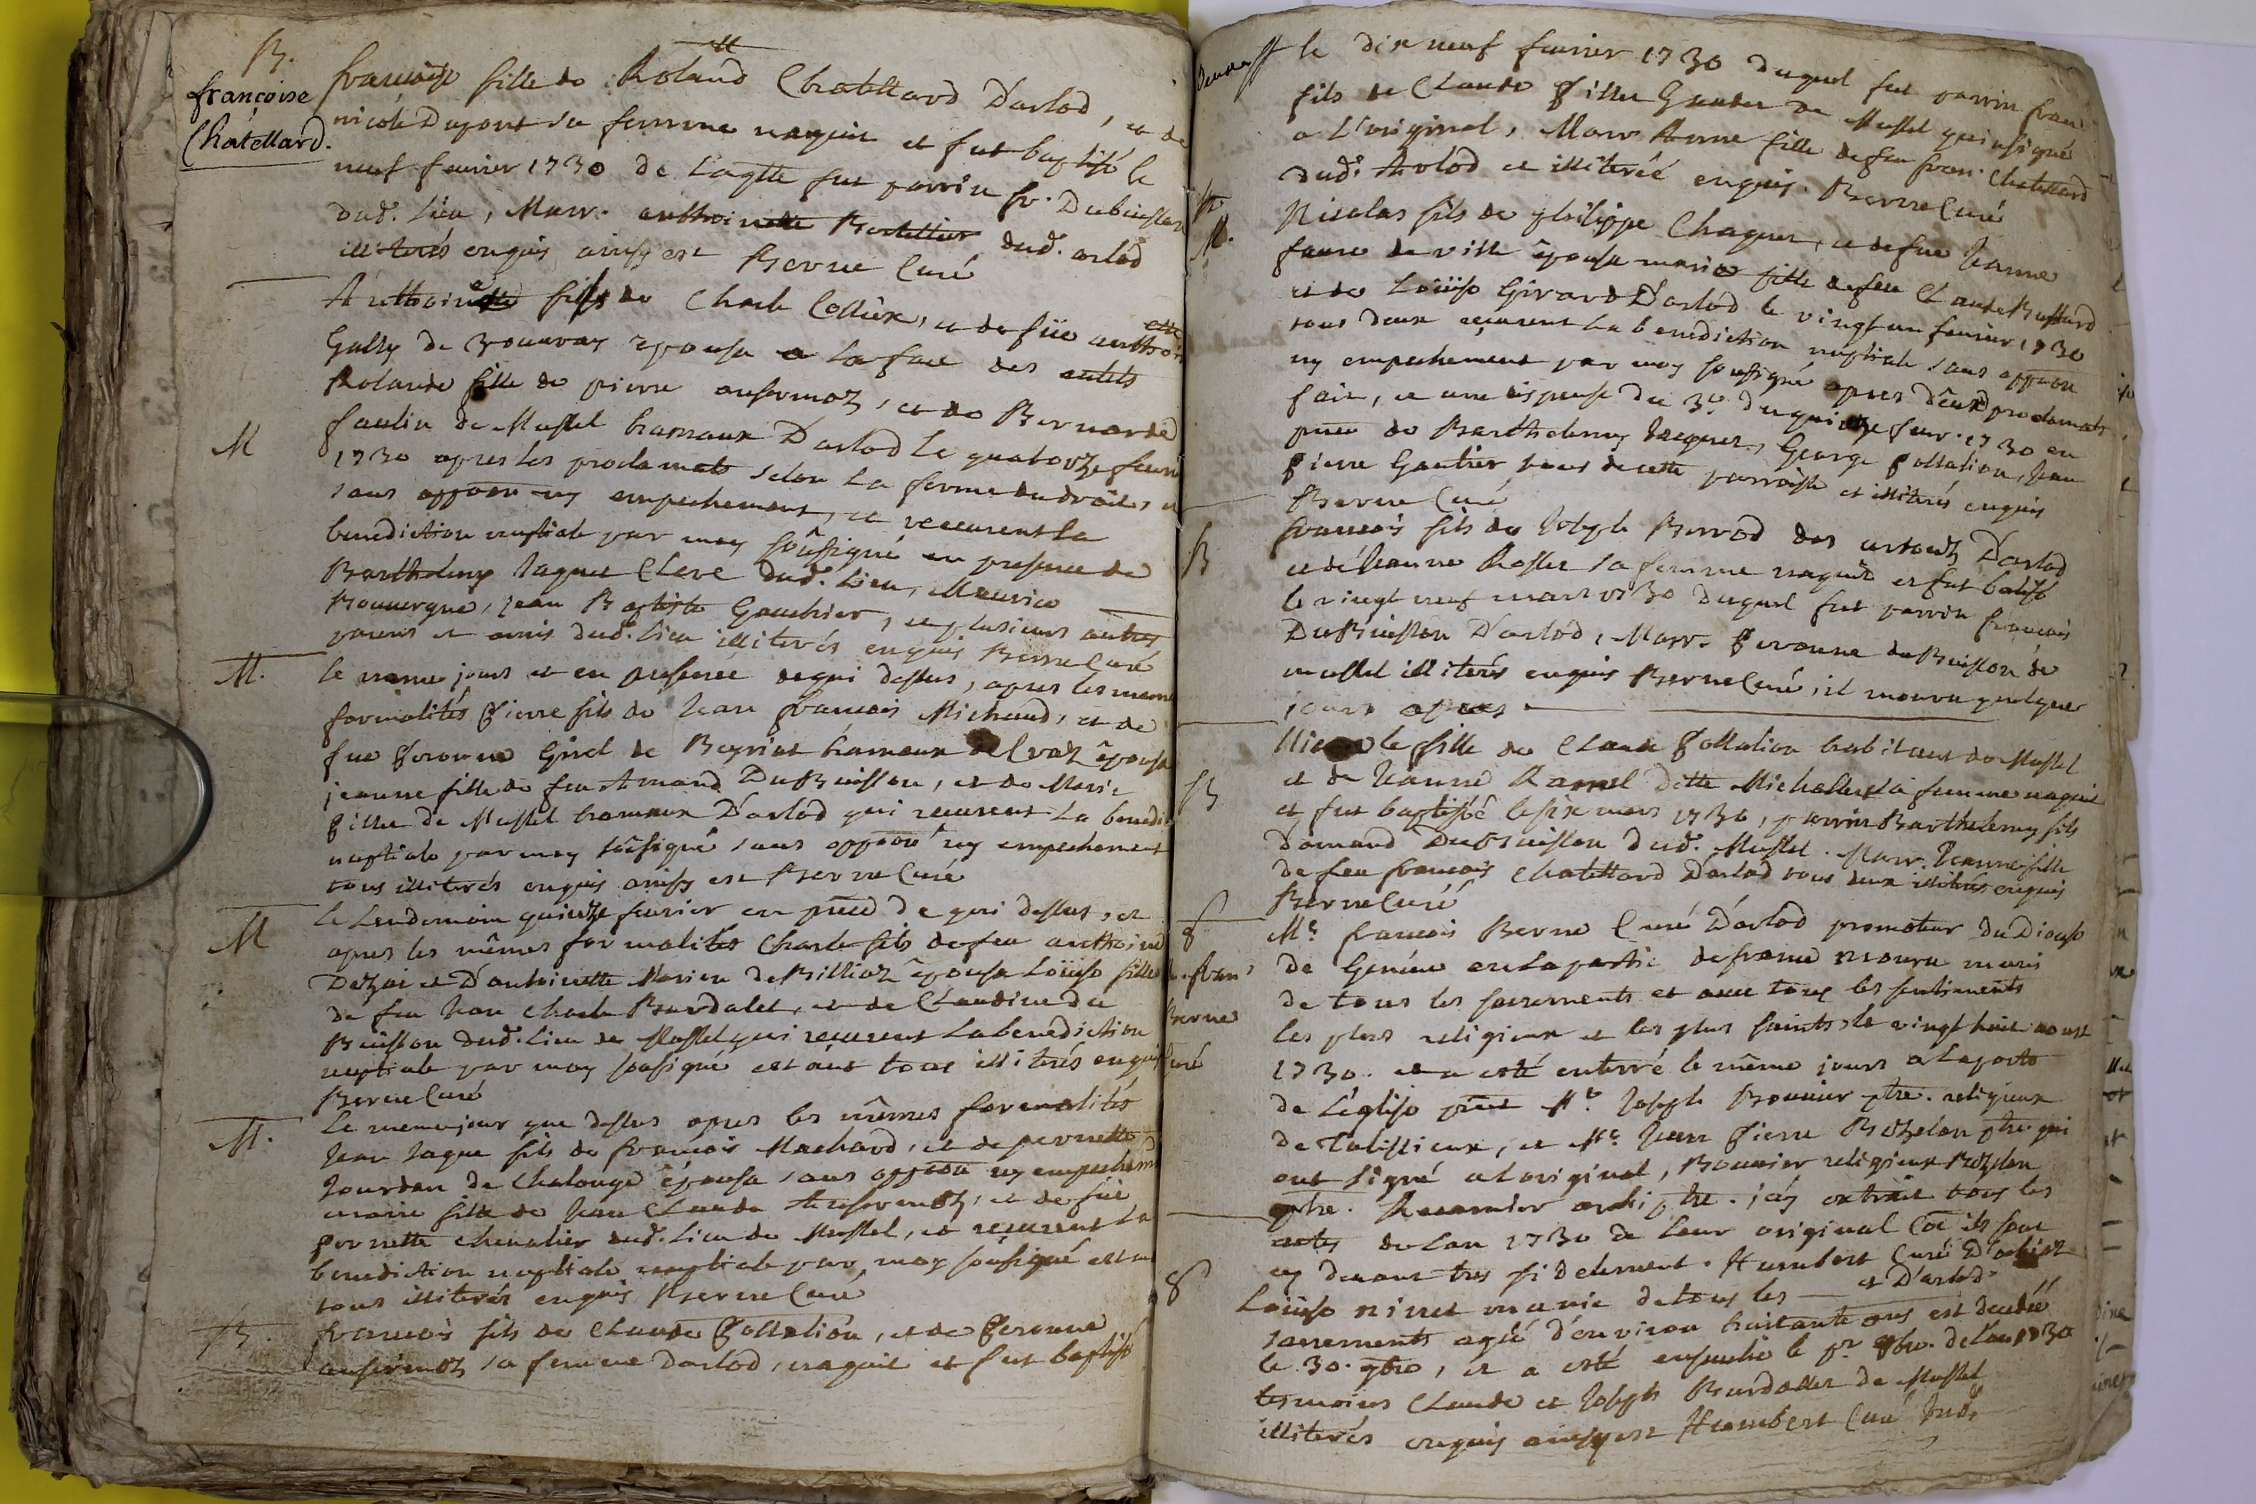 B.
françoise
Châtellard.
françoise fille de Roland Chatellard D'arlod, et de
nicole Dupont sa femme naquit et fut baptisé le
neuf feurier 1730 de Laqlle fut parrin fr. Dubuisson
dud. lieu, Marr. anthoinette dud. arlod
illiterés enquis ainsy est Berne Curé
M
Anthoine fils de Charle Collier, et de füe anthoinette
Gally de epousa a la face des autels
Rolande fille de pierre ansermoz, et de Bernarde
faulin de Mussel hameaux D'arlod le quatorze feurier
1730 apres les proclamats selon la forme du droit, et
sans oppoon ny empechement, et recurent la
benediction nuptiale par moy soûsigné en presence de
Barthelemy Jaques Clere dud. Lieu, Maurice
Bouuergne, jean Baptiste Gauthier, et plusieurs autres
parens et amis dud. lieu illiterés enquis Berne Curé
M.
le meme jours et en presence de qui dessus, apres les meme
formalités Pierre fils de Jean françois Michaud, et de
füe Peronne Ginel de hameaux de épousa
jeanne fille de feu Amand DuBuisson, et de Marie
Pittier de Mussel hameaux D'arlod qui recurent la benedi
nuptiale par moy soûsigné sans oppoon ny empechement
tous illiterés enquis ainsy est Berne Curé
M
le Lendemain quinze feurier en pnce de qui dessus, et
apres les mêmes formalités Charle fils de feu anthoine
et D'antoinette de épousa Loüise fille
de feu Jean Charle Burdalet, et de Claudine du
Buisson dud. lieu de Mussel qui recurent La benediction
nuptiale par moy sousigné tous illiterés enquis
Berne Curé
M.
Le meme jour que dessus apres les mêmes formalités
Jean Jaque fils de françois Machard, et de pernette
Jourdan de Chalonge épousa sans oppoon ny empechemt
marie fille de Jean Claude Ansermoz, et de füe
pernette Cheualier dud. lieu de Mussel, et recurent la
benediction nuptiale nuptiale par moy sousigné
tous illiterés enquis Berne Curé
B.
françois fils de Claude Pollalion, et de Peronne
ansermoz sa femme D'arlod, naquit et fut baptisé
le dix neuf feurier 1730 duquel fut parrin fran.
fils de Claude Pittier de Mussel qui a signé
a l'original, Marr. Anne fille de feu fran. Chatellard
dud. Arlod et illiterée enquis. Berne Curé
M.
Nicolas fils de philippe Chaques, et de füe Jeanne
faure de ville épousa marie fille de feu Claude
et de Loüise Girard D'arlod le vingt un feurier 1730
tous deux recurent la benediction nuptiale sans oppoon
ny empechement par moy sousigné apres deux proclamats
fait, et une dispense du 3e du quinze feur. 1730 en
pnce de Barthelemy Jaques, George Pollalion, Jean
Pierre Gautier tous de cette parroisse et illiterés enquis
Berne Curé
B
françois fils de Joseph Berrod des D'arlod
et de Jeanne Rosset sa femme naquit et fut batisé
le vingt neuf mars 1730 duquel fut parrin françois
DuBuisson D'arlod, Marr. Peronne duBuisson de
mussel illiterés enquis Berne Curé, il mouru quelques
jours apres
B
fille de Claude Pollalion habitant de Mussel
et de Jeanne Ramel ditte sa femme naquit
et fut baptisée le six mars 1730, parrin Barthelemy fils
Damand DuBuisson dud. Mussel. Marr. Jeanne fille
de feu françois Chatellard D'arlod tous deux illiterés enquis
Berne Curé
fran
Berne
curé
Mr. françois Berne Curé D'arlod promoteur du Diocese
de Geneue en la partie de france mouru muni
de tous les sacrements et auec tous les sentiments
les plus religieux et les plus saints, le vingt huit aoust
1730. et a esté enterré le même jours a la porte
de L'église pnt Mr. Joseph Bounier ptre. religieux
de Talissieux, et Mr. Jean Pierre ptre qui
ont signé a L'original, Bounier religieux
ptre. archiptre. j'ay extrait tous les
actes de Lan 1730 de leur original Coe ils sont
cy deuant tres fidelement. Humbert Curé
et D'arlod
Loüise ninet munie de tous les
sacrements agée d'enuiron huitante ans est decedée
le 30. 9bre, et a esté enseuelie le pr. Xbre. de l'an 1730
tesmoins Claude et Joseph Burdallet de Mussel
illiterés enquis ainsy est Humbert Curé Sud.